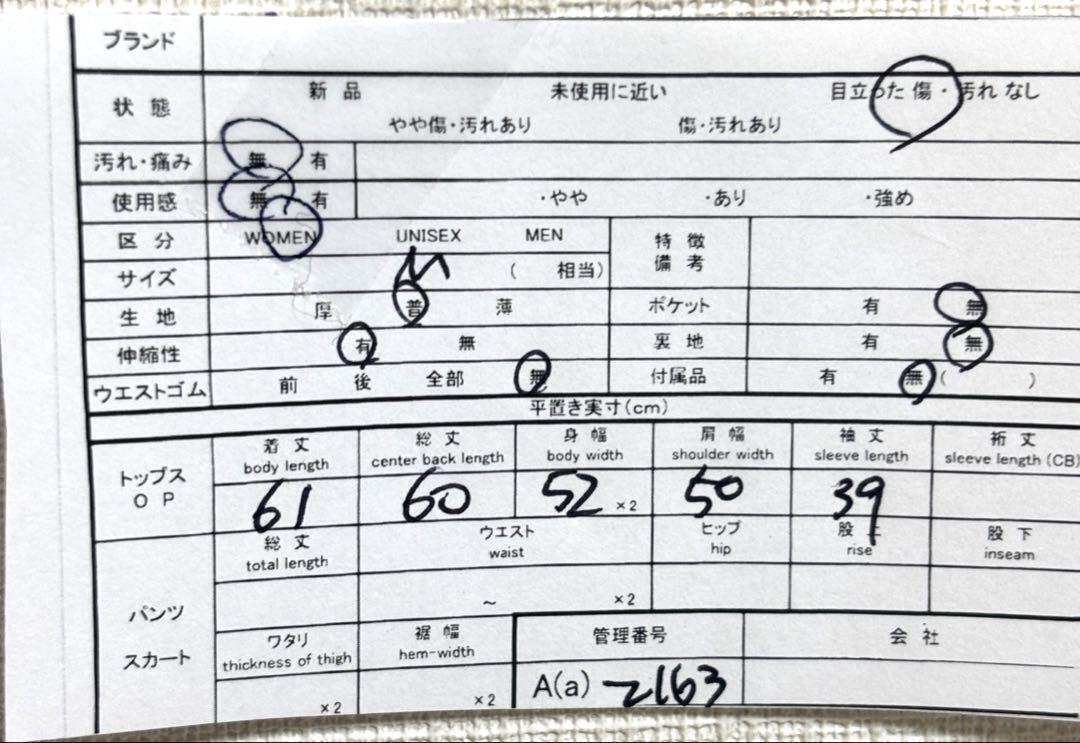 ブランド
状 態 新 品 未使用に近い 目立った 傷・汚れ なし
やや傷・汚れあり 傷・汚れあり
汚れ・痛み 無 有
使用感 無 有 ・やや ・あり ・強め
区 分 WOMEN UNISEX MEN 特 徴
備 考
サイズ M ( 相当)
生 地 厚 普 薄 ポケット 有 無
伸縮性 有 無 裏 地 有 無
ウエストゴム 前 後 全部 無 付属品 有 無 ( )
平置き実寸(cm)
トップス
O P
着 丈 総 丈 身 幅 肩 幅 袖 丈 裄 丈
body length center back length body width shoulder width sleeve length sleeve length (CB)
61 60 52 ×2 50 39
パンツ
スカート
総 丈 ウエスト ヒップ 股上 股 下
total length waist hip rise inseam
～ ×2
ワタリ 裾 幅 管理番号 会 社
thickness of thigh hem-width
×2 ×2 A(a) 2163